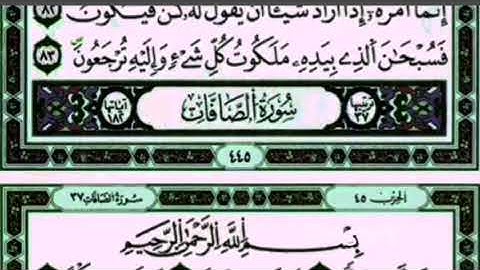 إِنَّمَا أَمْرُهُۥٓ إِذَآ أَرَادَ شَيْـًٔا أَن يَقُولَ لَهُۥ كُن فَيَكُونُ ٨٢
فَسُبْحَٰنَ ٱلَّذِى بِيَدِهِۦ مَلَكُوتُ كُلِّ شَىْءٍ وَإِلَيْهِ تُرْجَعُونَ ٨٣
ترتيبها ٣٧ سُورَةُ الصَّافَّات آياتها ١٨٢
٤٤٥
الحزب ٤٥ سورة الصافات ٣٧
بِسْمِ ٱللَّهِ ٱلرَّحْمَٰنِ ٱلرَّحِيمِ